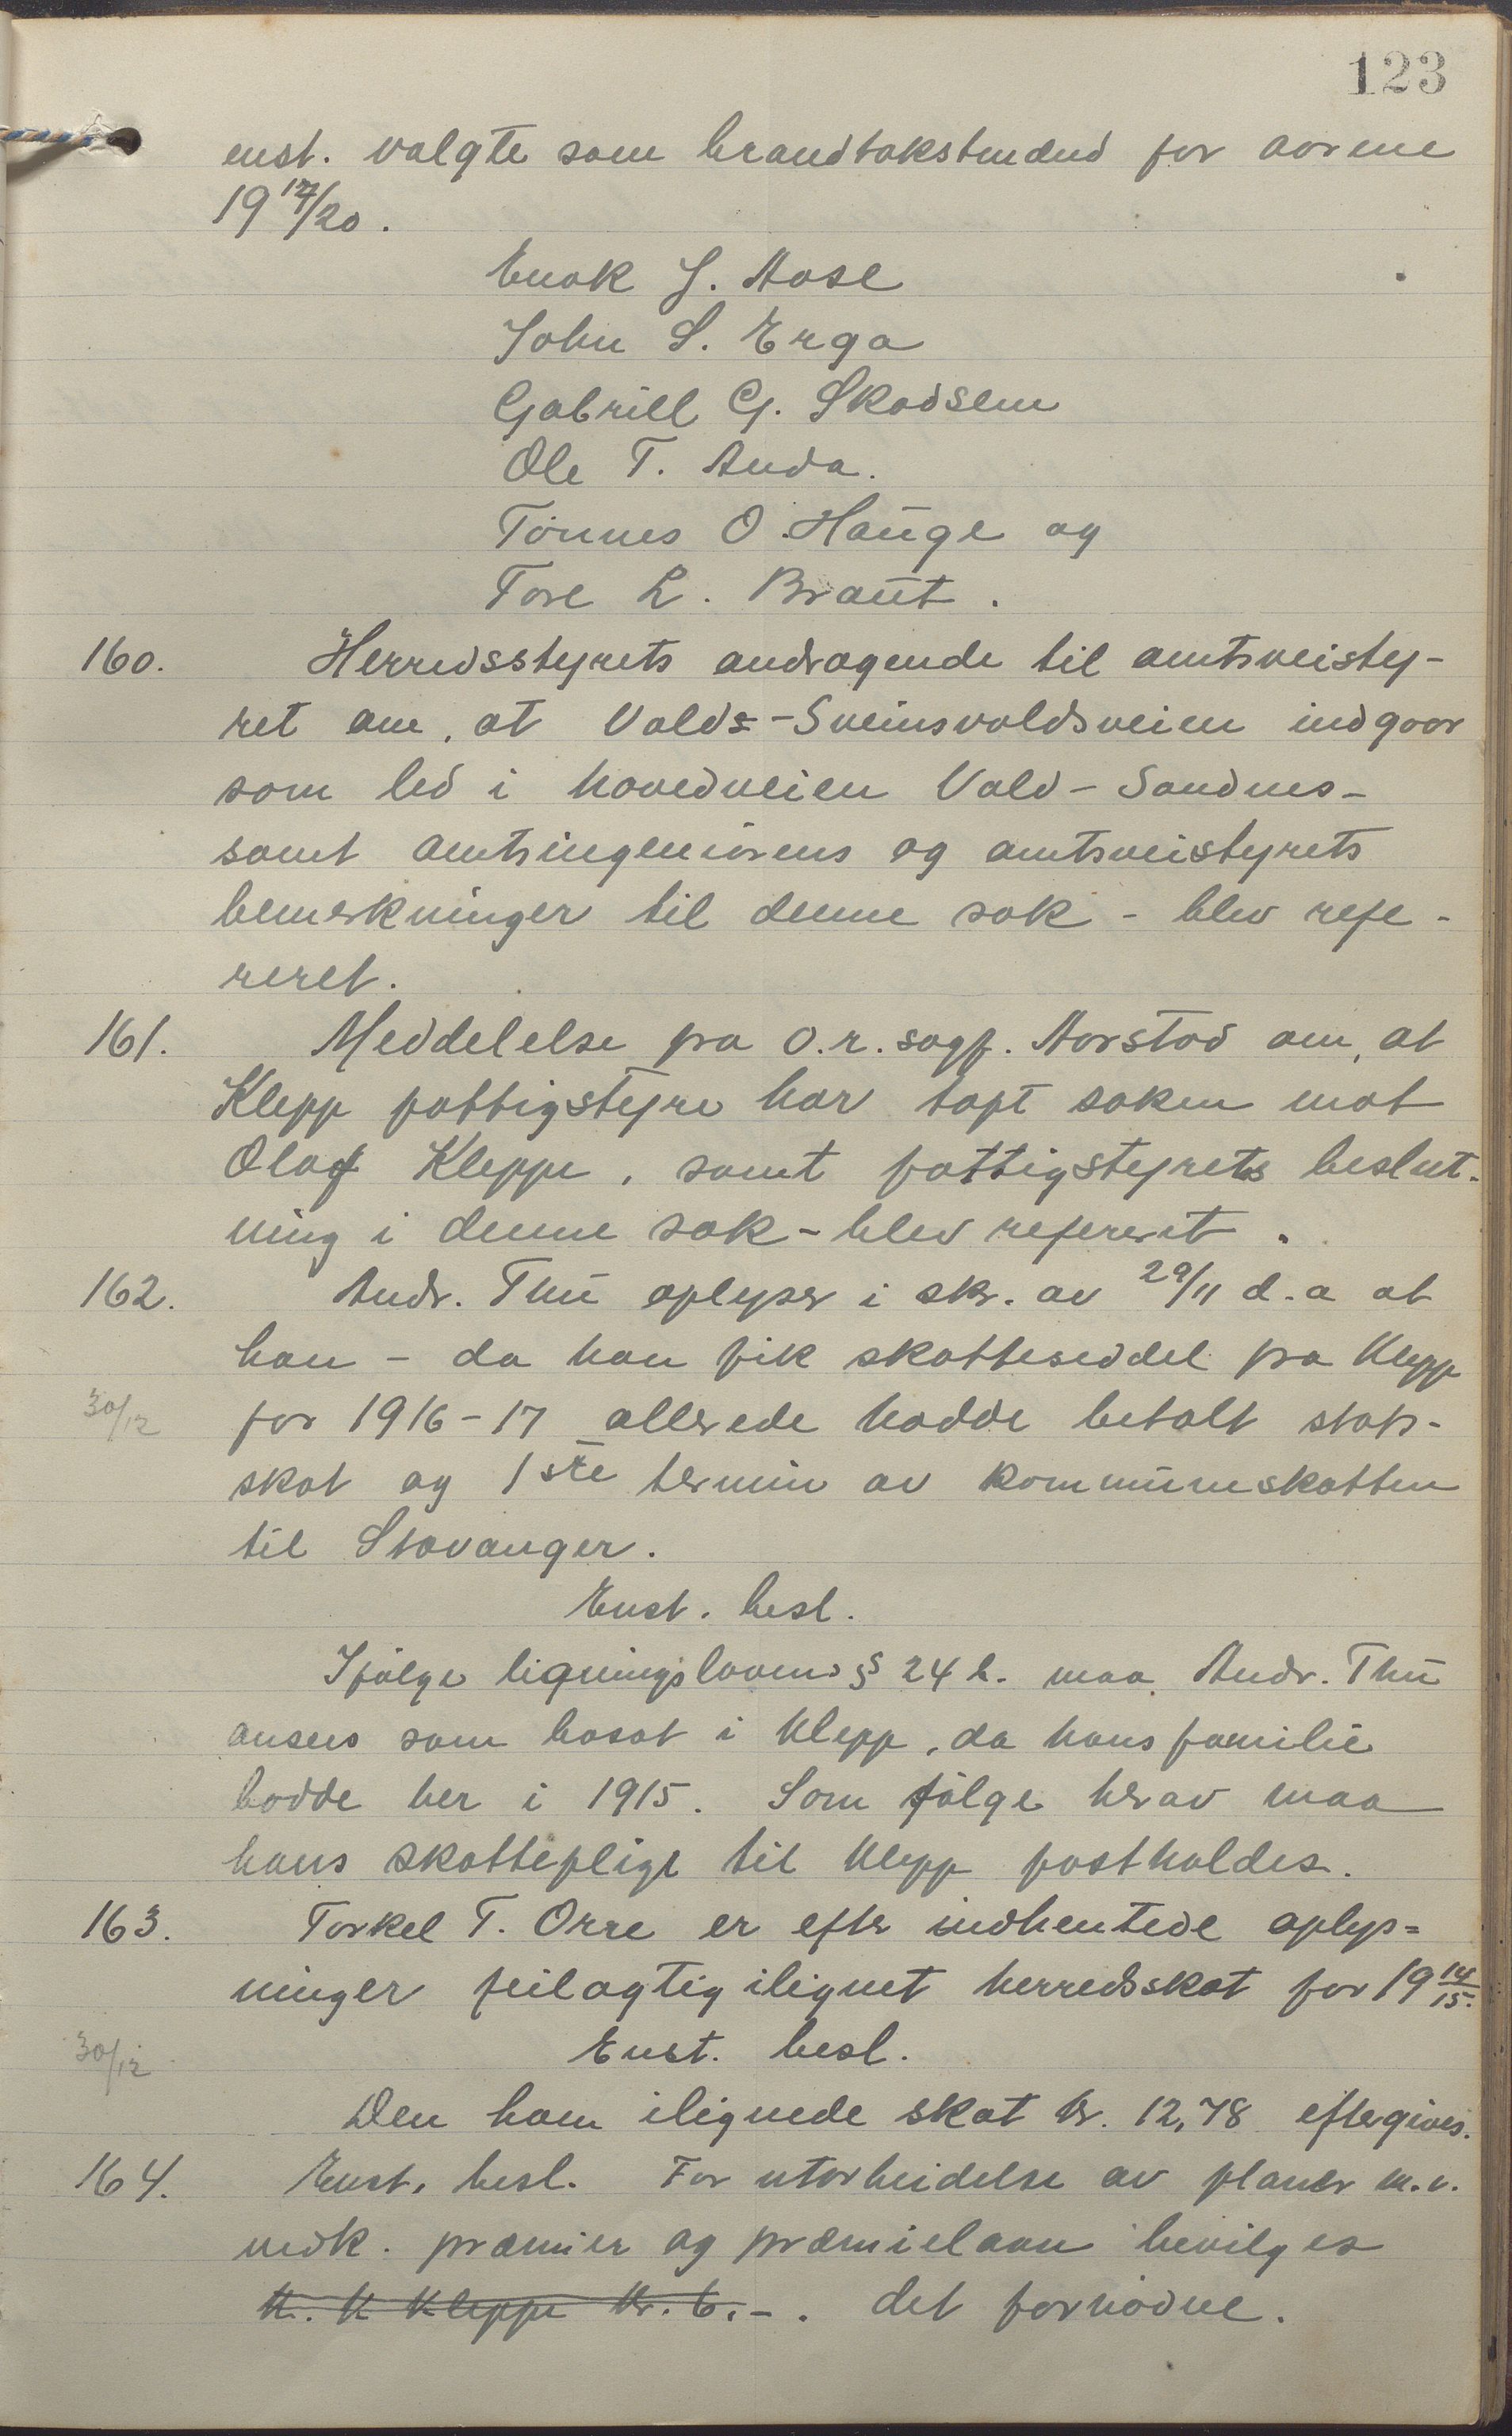 123
enst. valgte som brandtakstmænd for aarene
19 17/20.
Enok J. Aase
John S. Erga
Gabriel G. Skadsem
Ole T. Anda.
Tönnes O. Hauge og
Tore L. Braut.
160. Herredsstyrets andragende til amtsveisty-
ret om, at Volds-Sveinsvoldsveien indgaar
som led i hovedveien Vold - Sandnes -
samt amtsingeniörens og amtsveistyrets
bemerkninger til denne sak - blev refe-
reret.
161. Meddelelse fra o.r.sagf. Aarstad om, at
Klepp fattigstyre har tapt saken mot
Olaf Kleppe, samt fattigstyrets beslut-
ning i denne sak - blev referert.
162. Andr. Thu oplyser i skr. av 29/11 d.a at
han - da han fik skatteseddel fra Klepp
30/12 for 1916-17 allerede hadde betalt stats-
skat og 1ste termin av kommuneskatten
til Stavanger.
Enst. besl.
Ifölge ligningslovens § 24 b. maa Andr. Thu
ansees som bosat i Klepp, da hans familie
bodde her i 1915. Som fölge herav maa
hans skattepligt til Klepp fastholdes.
163. Torkel T. Orre er efter indhentede oplys=
ninger feilagtig ilignet herredsskat for 19 14/15.
30/12 Enst. besl.
Den ham ilignede skat kr. 12,78 eftergives.
164. Enst. besl. For utarbeidelse av planer m.v.
vedk. præmier og præmielaan bevilges
K. K Kleppe kr. 6.-. det fornödne.